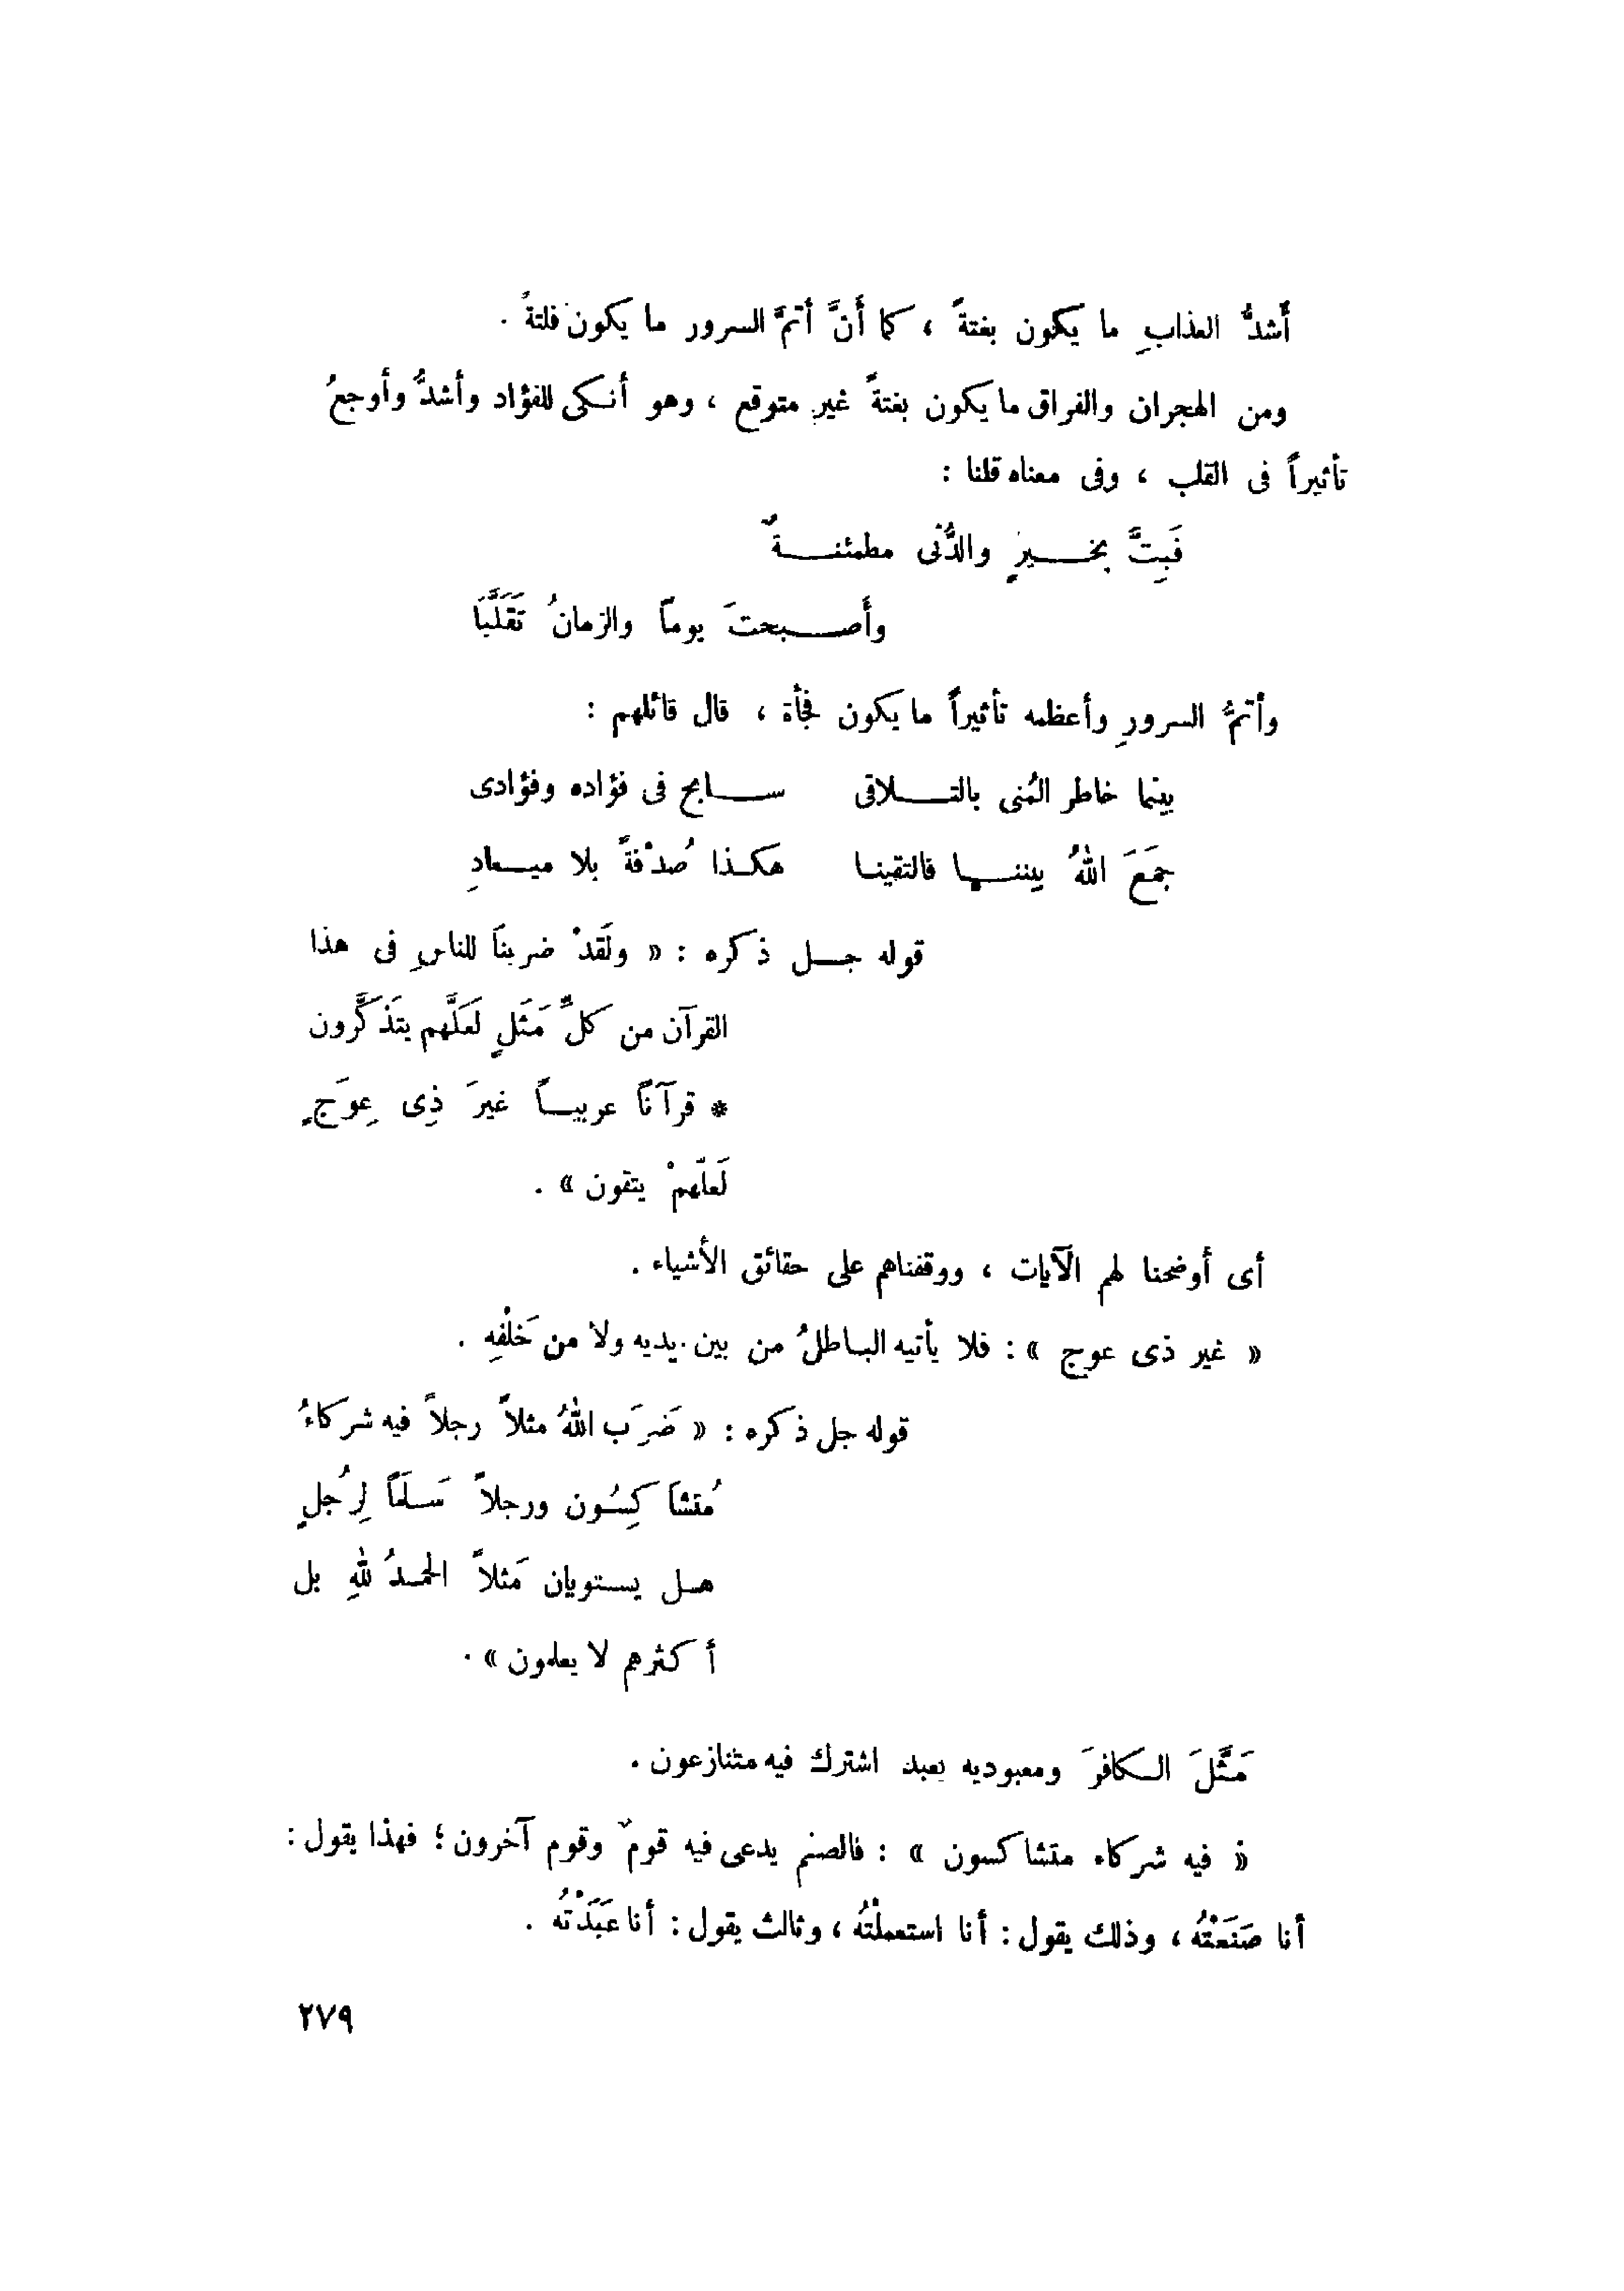 أشدُّ العذابِ ما يكون بغتةً ، كما أنَّ أتمَّ السرور ما يكون فلتةً .
ومن الهجران والفراق ما يكون بغتةً غير متوقع ، وهو أنكى للفؤاد وأشدُّ وأوجعُ
تأثيراً فى القلب ، وفى معناه قلنا :
فَبِتَّ بخيرٍ والدُّنى مطمئنةٌ
وأَصبحتَ يوماً والزمانُ تَقَلَّبَا
وأتمُّ السرورِ وأعظمه تأثيراً ما يكون فجأة ، قال قائلهم :
بينما خاطر المُنى بالتلاقى سابح فى فؤاده وفؤادى
جمَعَ اللهُ بيننا فالتقينا هكذا صُدْفةً بلا ميعادِ
قوله جل ذكره : « ولَقدْ ضربنَا للناسِ فى هذا
القرآن من كلِّ مَثَلٍ لَعَلَّهم يتَذَكَّرون
* قرآنًا عربياً غيرَ ذِى عِوَجٍ
لَعلَّهمْ يتقون » .
أى أوضحنا لهم الآيات ، ووقفناهم على حقائق الأشياء .
« غير ذى عوج » : فلا يأتيه الباطلُ من بين يديه ولا من خَلْفِه .
قوله جل ذكره : « ضَرَب اللهُ مثلاً رجلاً فيه شركاءُ
مُتشاكِسُون ورجلاً سَلَماً لِرَجُلٍ
هل يستويان مَثلاً الحمدُ للهِ بل
أكثرهم لا يعلمون » .
مَثَّلَ الكافرَ ومعبوديه بعبد اشترك فيه متنازعون .
« فيه شركاء متشاكسون » : فالصنم يدعى فيه قومٌ وقوم آخرون ؛ فهذا يقول :
أنا صَنَعْتُه ، وذلك يقول : أنا استعملْتُه ، وثالث يقول : أنا عَبَدْتُه .
٢٧٩